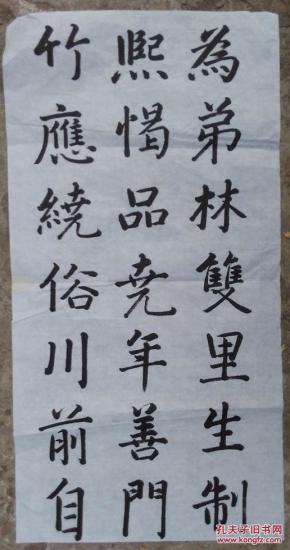 為弟林雙里生制
熙惕品堯年善門
竹應繞俗川前自
孔夫子旧书网
www.kongfz.com